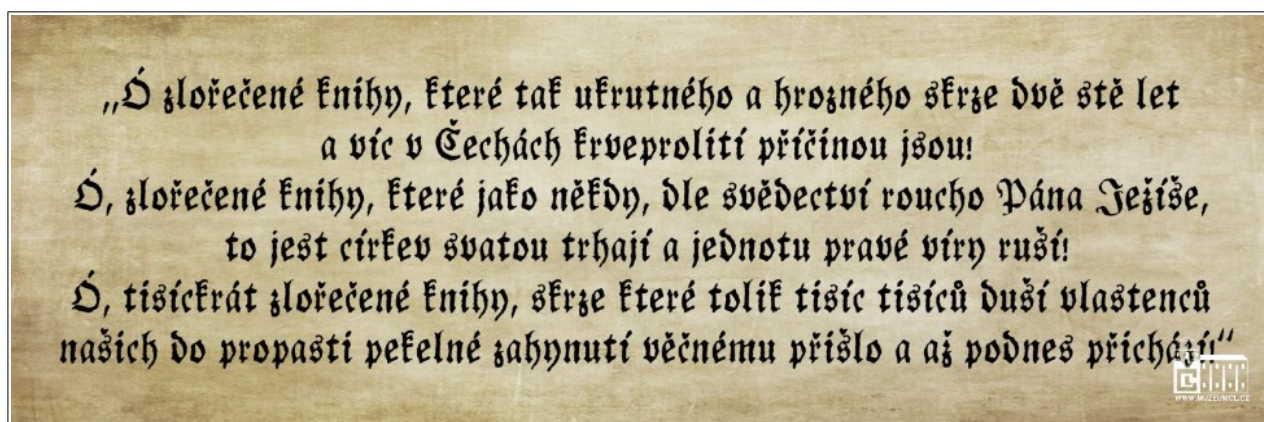 „Ó zlořečené knihy, které tak ukrutného a hrozného skrze dvě stě let
a víc v Čechách krveprolití příčinou jsou!
Ó, zlořečené knihy, které jako někdy, dle svědectví roucho Pána Ježíše,
to jest církev svatou trhají a jednotu pravé víry ruší!
Ó, tisíckrát zlořečené knihy, skrze které tolik tisíc tisíců duší vlastenců
našich do propasti pekelné zahynutí věčnému přišlo a až podnes přichází!“
WWW.MUZEUMCL.CZ